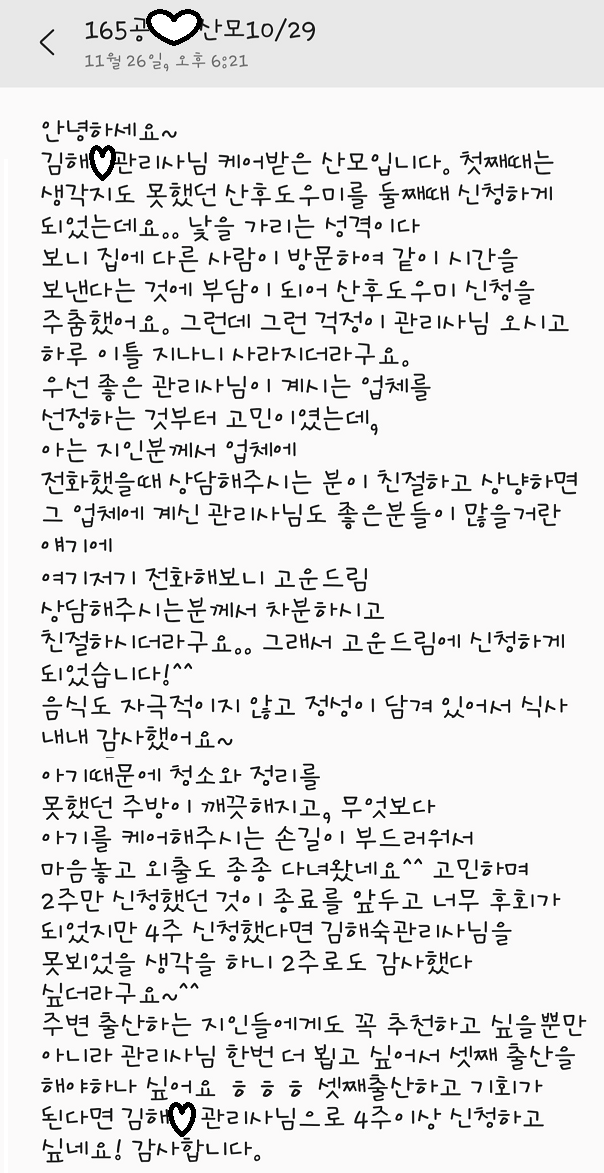 165공 산모10/29
11월 26일, 오후 6:21
안녕하세요~
김해 관리사님 케어받은 산모입니다. 첫째때는
생각지도 못했던 산후도우미를 둘째때 신청하게
되었는데요.. 낯을 가리는 성격이다
보니 집에 다른 사람이 방문하여 같이 시간을
보낸다는 것에 부담이 되어 산후도우미 신청을
주춤했어요. 그런데 그런 걱정이 관리사님 오시고
하루 이틀 지나니 사라지더라구요.
우선 좋은 관리사님이 계시는 업체를
선정하는 것부터 고민이였는데,
아는 지인분께서 업체에
전화했을때 상담해주시는 분이 친절하고 상냥하면
그 업체에 계신 관리사님도 좋은분들이 많을거란
얘기에
여기저기 전화해보니 고운드림
상담해주시는분께서 차분하시고
친절하시더라구요.. 그래서 고운드림에 신청하게
되었습니다!^^
음식도 자극적이지 않고 정성이 담겨 있어서 식사
내내 감사했어요~
아기때문에 청소와 정리를
못했던 주방이 깨끗해지고, 무엇보다
아기를 케어해주시는 손길이 부드러워서
마음놓고 외출도 종종 다녀왔네요^^ 고민하며
2주만 신청했던 것이 종료를 앞두고 너무 후회가
되었지만 4주 신청했다면 김해숙관리사님을
못뵈었을 생각을 하니 2주로도 감사했다
싶더라구요~^^
주변 출산하는 지인들에게도 꼭 추천하고 싶을뿐만
아니라 관리사님 한번 더 뵙고 싶어서 셋째 출산을
해야하나 싶어요 ㅎㅎㅎ 셋째출산하고 기회가
된다면 김해 관리사님으로 4주이상 신청하고
싶네요! 감사합니다.